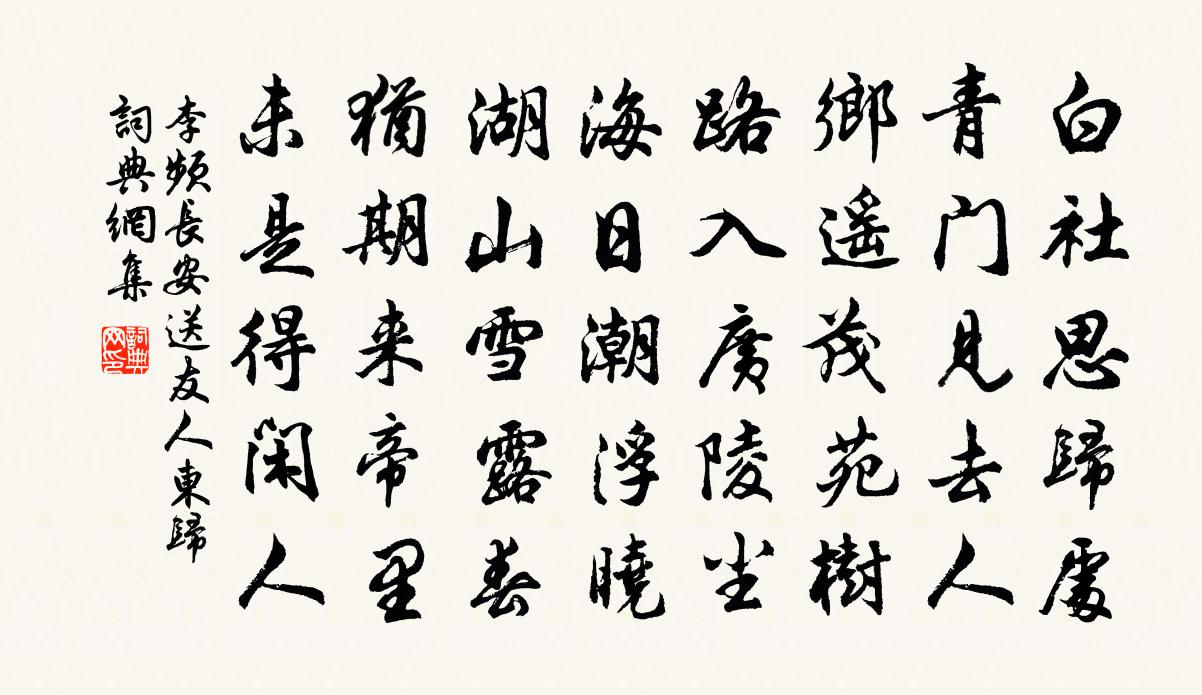 白社思歸處
青门見去人
鄉遥茂苑樹
路入廣陵尘
海日潮浮曉
湖山雪露春
猶期来帝里
未是得闲人
李频長安送友人東歸
詞典網集
詞典网印